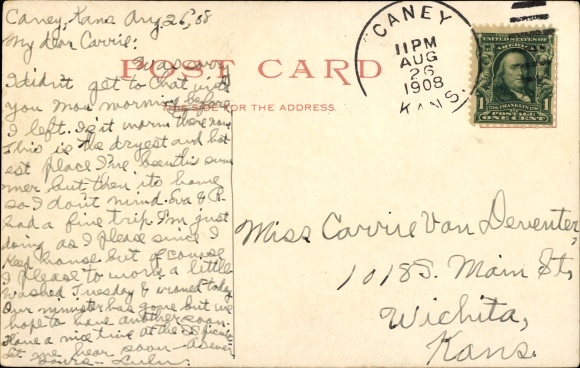 Caney, Kans Aug. 26, '08
My dear Carrie:
Was sorry
I didn't get to chat with
you Mon morning before
I left. Is it warm there now
This is the dryest and hot
est place I've been this sum
mer but then its home
so I don't mind. Eva & R.
had a fine trip. I'm just
doing as I please since I
keep house but of course
I please to work a little
Washed Tuesday & ironed today
Our minister has gone but we
hope to have another soon.
Have a nice time at the picnic
Let me hear soon - As ever
Yours - Lulu.
POST CARD
THIS SIDE FOR THE ADDRESS.
CANEY
11 PM
AUG
26
1908
KANS.
UNITED STATES OF
AMERICA
1
FRANKLIN
1
POSTAGE
ONE CENT
Miss Carrie Van Deventer,
1018 S. Main St,
Wichita,
Kans.